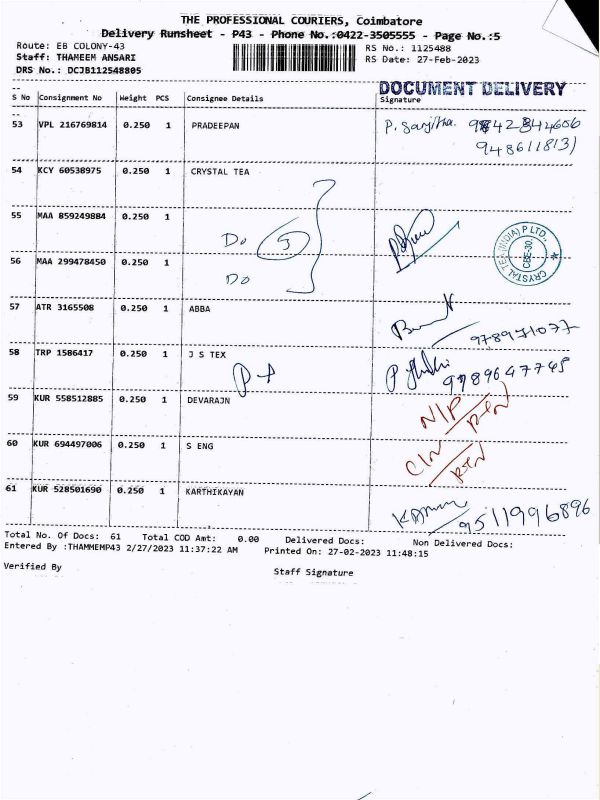 THE PROFESSIONAL COURIERS, Coimbatore
Delivery Runsheet - P43 - Phone No.:0422-3505555 - Page No.:5
Route: EB COLONY-43
RS No.: 1125488
Staff: THAMEEM ANSARI
RS Date: 27-Feb-2023
DRS No.: DCJB112548805
DOCUMENT DELIVERY
S No Consignment No Weight PCS Consignee Details Signature
53 VPL 216769814 0.250 1 PRADEEPAN
54 KCY 60538975 0.250 1 CRYSTAL TEA
55 MAA 859249884 0.250 1
Do 3
56 MAA 299478450 0.250 1
Do
CRYSTAL TEA (INDIA) P LTD., CBE-30
57 ATR 3165508 0.250 1 ABBA
58 TRP 1586417 0.250 1 J S TEX
59 KUR 558512885 0.250 1 DEVARAJN
N/P
60 KUR 694497006 0.250 1 S ENG
61 KUR 528501690 0.250 1 KARTHIKAYAN
9511996896
Total No. Of Docs: 61 Total COD Amt: 0.00 Delivered Docs: Non Delivered Docs:
Entered By :THAMMEMP43 2/27/2023 11:37:22 AM Printed On: 27-02-2023 11:48:15
Verified By
Staff Signature